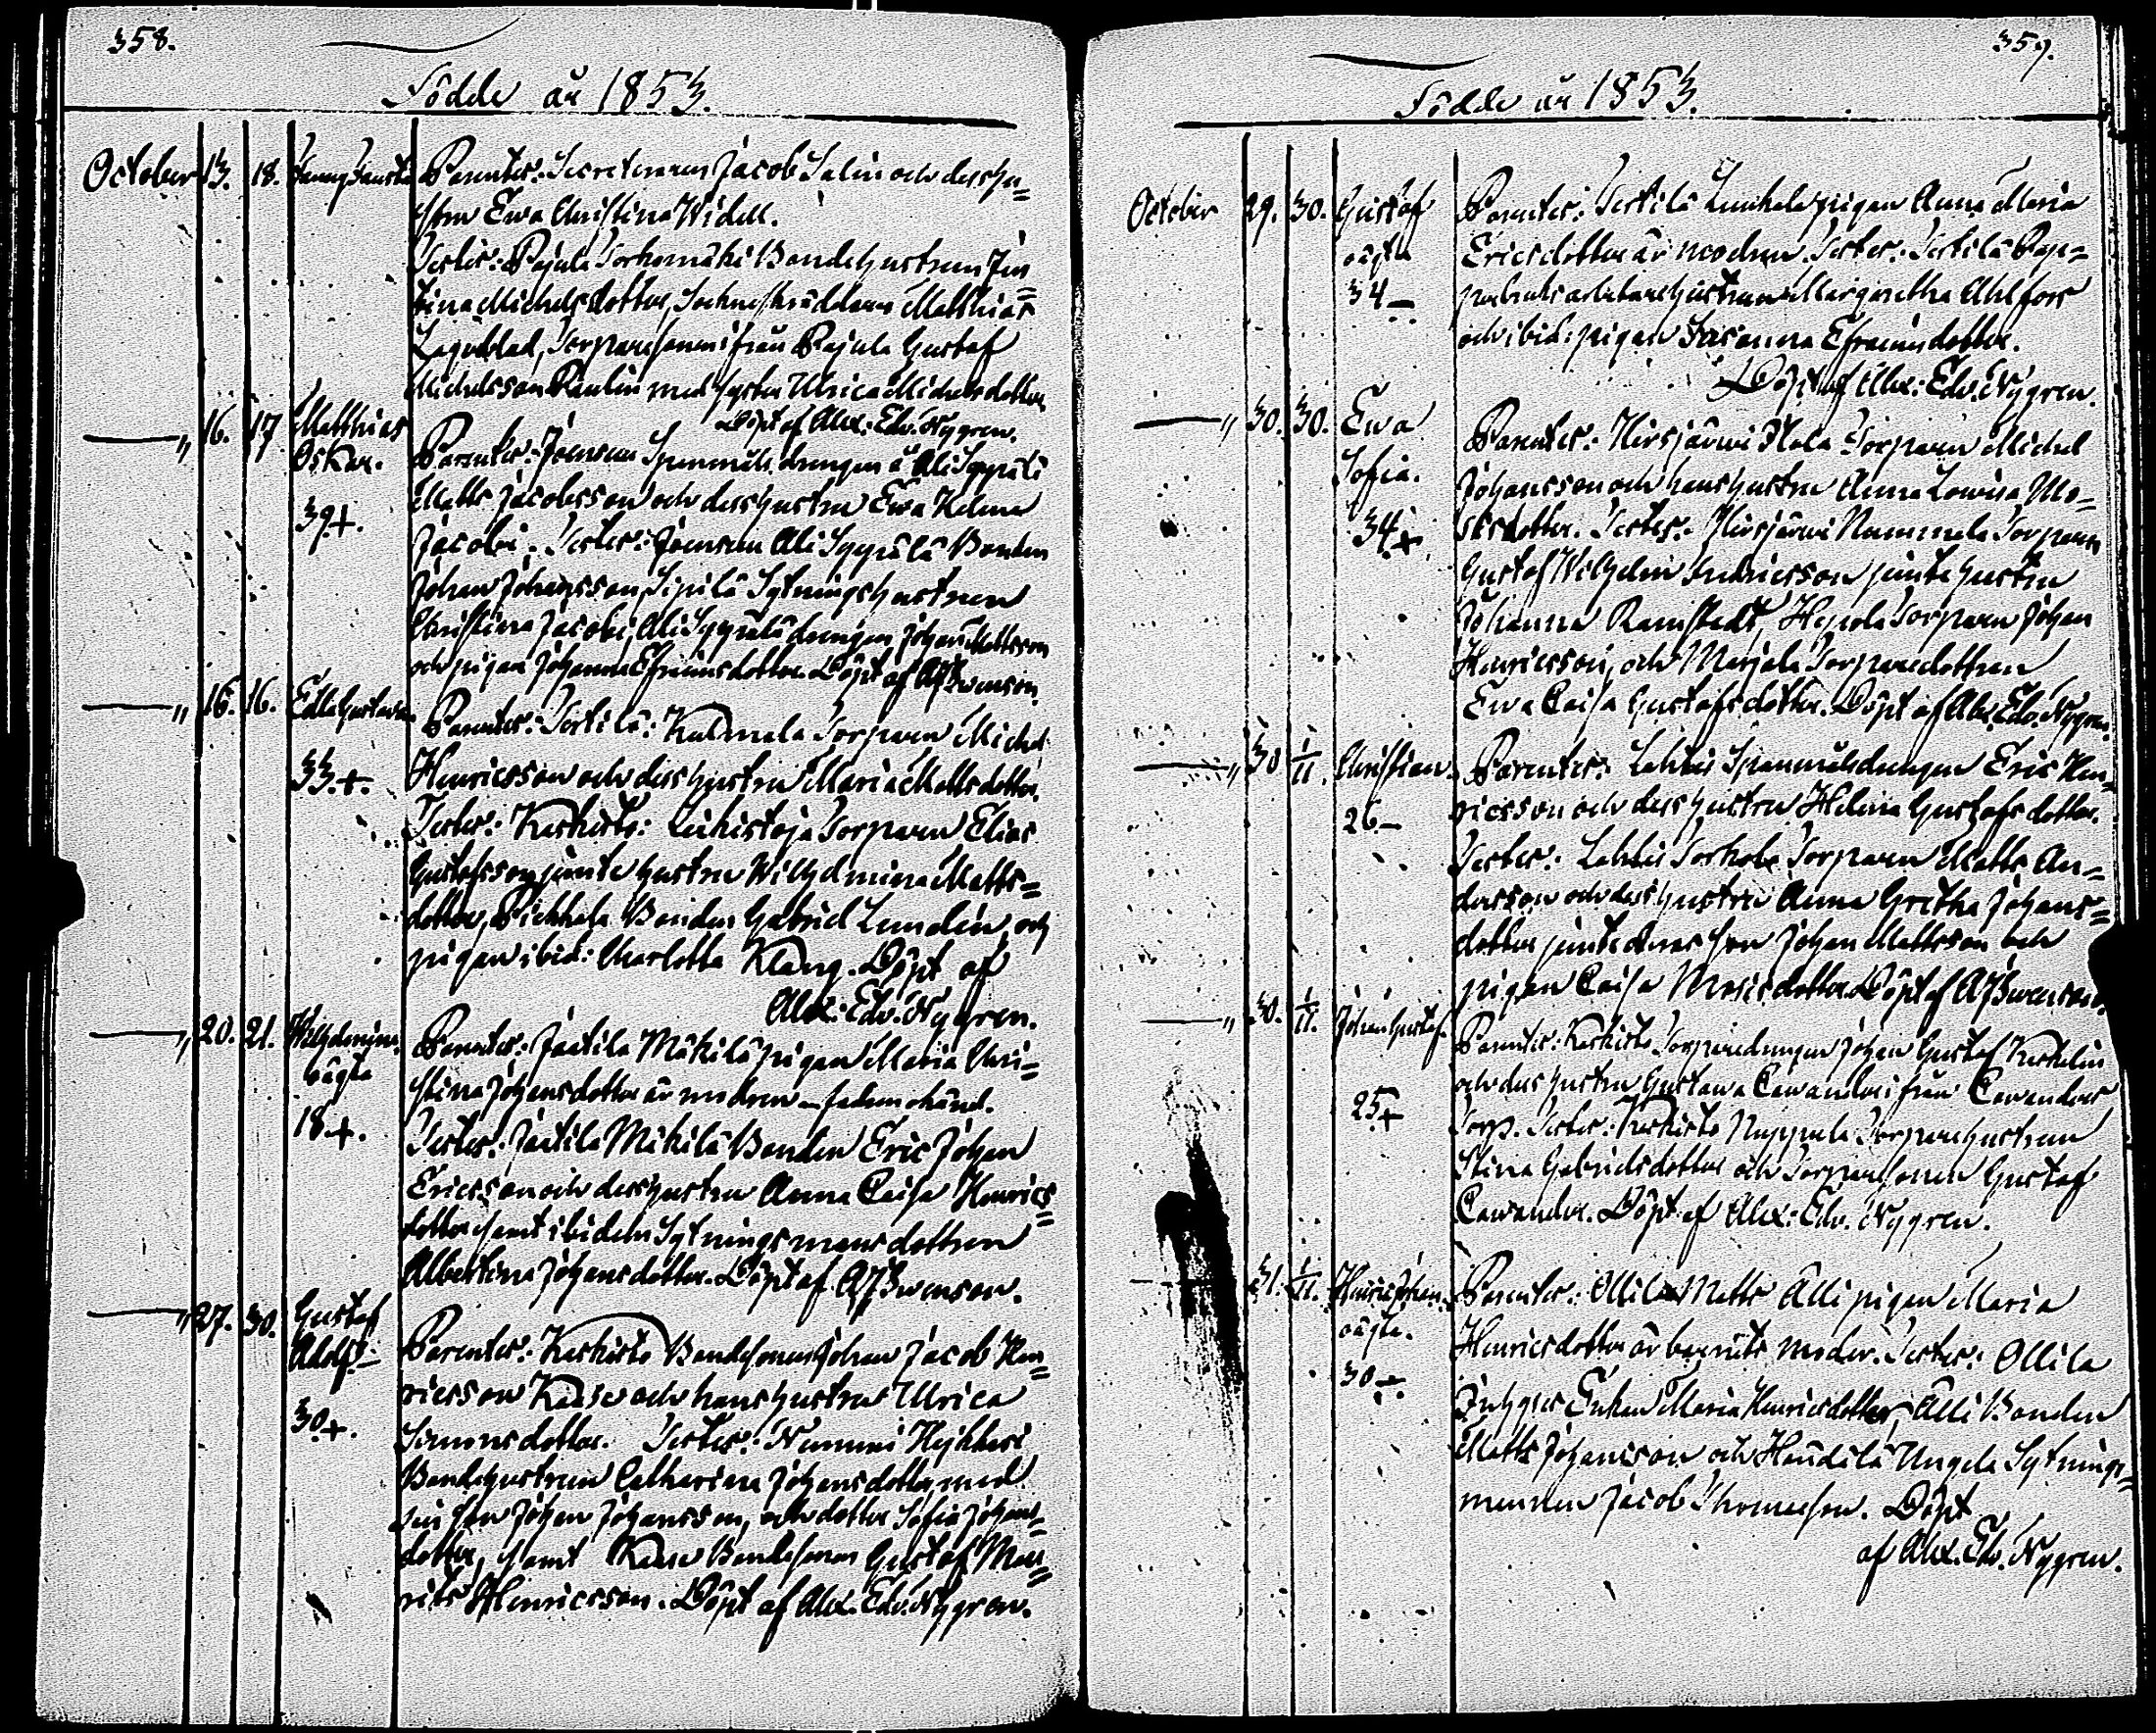 358.
Födde år 1853.
October 13. 18. Fanny Fausta Parentes: Secreteraren Jacob Salin och dess hu=
stru Ewa Christina Widell.
Testes: Pajula Bondehustrun
Michelsdotter, Matthias
Lagerblad, från Pajula Gustaf
Michelsson Paulin med syster Ulrica Michelsdotter
Döpt af Alex: Edv. Nygren.
—„ 16. 17 Matthias Oskar. 39+. Parentes: Joensuu Spanmåls drängen å Ali Syppälä
Matts Jacobsson och dess hustru Ewa Helena
Jacobi. Testes: Joensuu Ali Syppälä Bonden
Johan Johansson, Sipilä Sytningshustrun
Christina Jacobi, Ali Syppälä drängen Johan Mattsson
och pigan Johanna Efraimsdotter. Döpt af AfSwenson.
—„ 15. 16. Edla Gustava. 33.+. Parentes: Tortila: Kulmala Torparen Michel
Henricsson och dess hustru Maria Mattsdotter.
Testes: Karkisto: Leikistoja Torparen Elias
Gustafsson jemte hustru Wilhelmina Matts=
dotter, Bonden Gabriel Lundén, och
pigan ibid: Charlotta Klang. Döpt af
Alex: Edv: Nygren.
—„ 20. 21. Wilhelmina. oägta 18+. Parentes: Jaatila Mäkilä pigan Maria Chri=
stina Johansdotter är modren – fadren okänd.
Testes: Jaatila Mäkilä Bonden Eric Johan
Ericsson och dess hustru Anna Caisa Henrics=
dotter samt ibidem Sytningsmans dottren
Albertina Johansdotter. Döpt af AfSwenson.
—„ 27. 30. Gustaf Adolf. 30+. Parentes: Karkisto Bondesonen Johan Jacob Hen=
ricsson Kaase och hans hustru Ulrica
Simonsdotter. Testes: Nummi Heikkeri
Bondehustrun Catharina Johansdotter, med
sin son Johan Johansson, och dotter Sofia Johans=
dotter, samt Kaase Bondesonen Gustaf Mau=
rits Henricsson. Döpt af Alex: Edv. Nygren.
359.
Födde år 1853.
October 29. 30. Gustaf oägta 34– Parentes: Tertilä pigan Anna Maria
Ericsdotter är modren. Testes: Tertilä Pap=
persbruks arbetare hustrun Margaretha Ahlfors
och ibid: pigan Susanna Efraimsdotter.
Döpt af Alex: Edv. Nygren.
—„ 30. 30. Ewa Sofia. 34+ Parentes: Hirsjärwi Torparen Michel
Johansson och hans hustru Anna Lowisa Mo=
sesdotter. Testes: Hirsjärwi Nummela Torparen
Gustaf Wilhelm Indricsson jemte hustru
Johanna Ramstedt, Hepola Torparen Johan
Henricsson, och Marjala Torparedottren
Ewa Caisa Gustafsdotter. Döpt af Alex. Edv. Nygren.
—„ 30 1/11. Christian. 26.– Parentes: Lahtis Spanmålsdrängen Eric Hen=
ricsson och dess hustru Helena Gustafsdotter.
Testes: Lahtis Torparen Matts An=
dersson och dess hustru Anna Gretha Johans=
dotter jemte deras son Johan Mattsson och
pigan Caisa Mosisdotter. Döpt af AfSwenson.
—„ 30. 1/11. Johan Gustaf. 25+ Parentes: Karkisto Torparedrängen Johan Gustaf Karkelin
och dess hustru Gustava Cawander från Cawanders
Torp. Testes: Karkisto Nuppula Torparehustrun
Stina Gabrielsdotter och Torparesonen Gustaf
Cawander. Döpt af Alex: Edv. Nygren.
31. 1/11. Henric Johan. oägta. 30+. Parentes: Ollila Matts Alli pigan Maria
Henricsdotter är barnets moder. Testes: Ollila
Enkan Maria Henricsdotter, Alli Bonden
Matts Johansson och Heudilä Ungela Sytnings=
mannen Jacob Thomasson. Döpt
af Alex. Edv. Nygren.